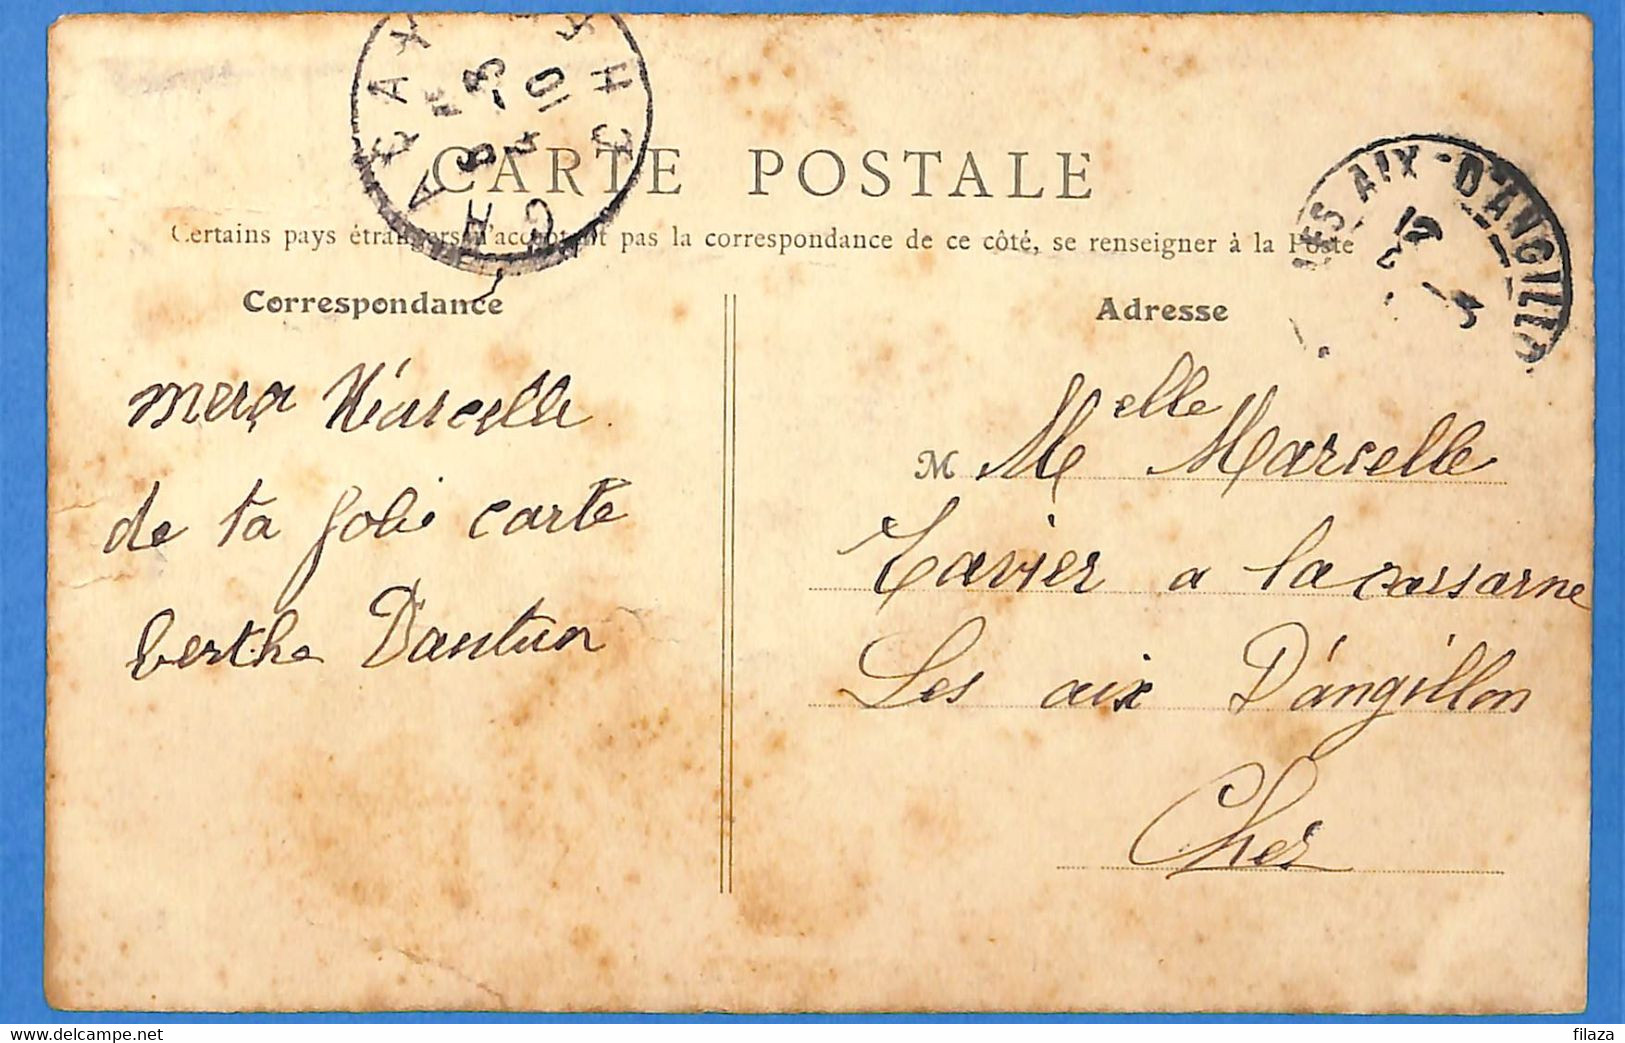 CARTE POSTALE
Certains pays étrangers n'acceptent pas la correspondance de ce côté, se renseigner à la Poste
LES AIX-D'ANGILLON
Correspondance
Adresse
merci Marcelle
de ta Jolie carte
berthe
M Melle Marcelle
Tavier a la
Les aix D'angillon
Cher
filaza